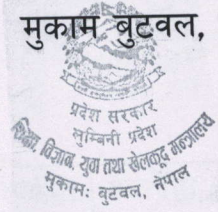 मुकाम बुटवल,
प्रदेश सरकार
लुम्बिनी प्रदेश
शिक्षा, विज्ञान, युवा तथा खेलकुद मन्त्रालय
मुकामः बुटवल, नेपाल